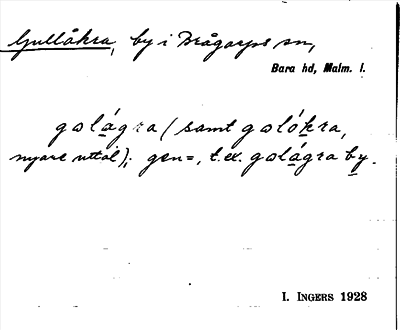 Gullåkra, by i Brågarps sn,
Bara hd, Malm. l.
golágra (samt golókra,
nyare uttal); gen=, t.ex. golágra by.
I. INGERS 1928